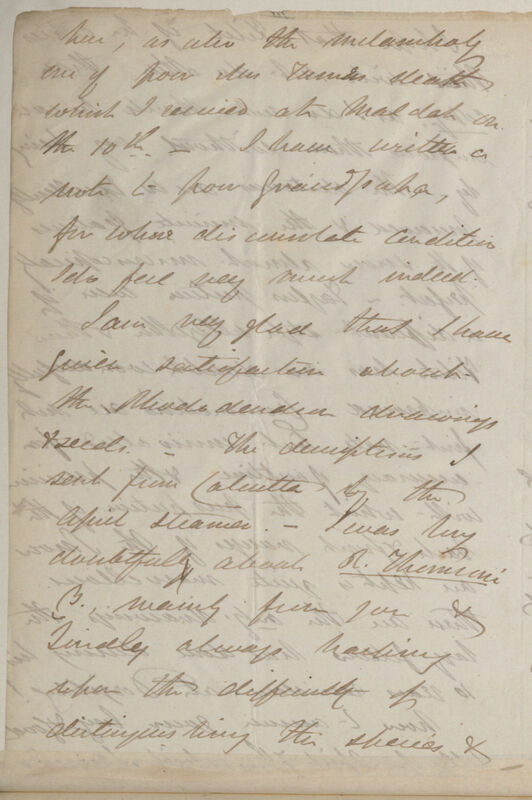 here, as also the melancholy
one of poor Mrs Turner's death
which I received at Maldah on
the 10th. — I have written a
note to poor Grandpapa,
for whose disconsolate condition
I do feel very much indeed.
I am very glad that I have
given satisfaction about
the Rhododendron drawings
& seeds. — The descriptions I
sent from Calcutta by the
April steamer. — I was very
doubtful about R. Thomsoni
β., mainly from you &
Lindley always harking
upon the difficulty of
distinguishing the species &